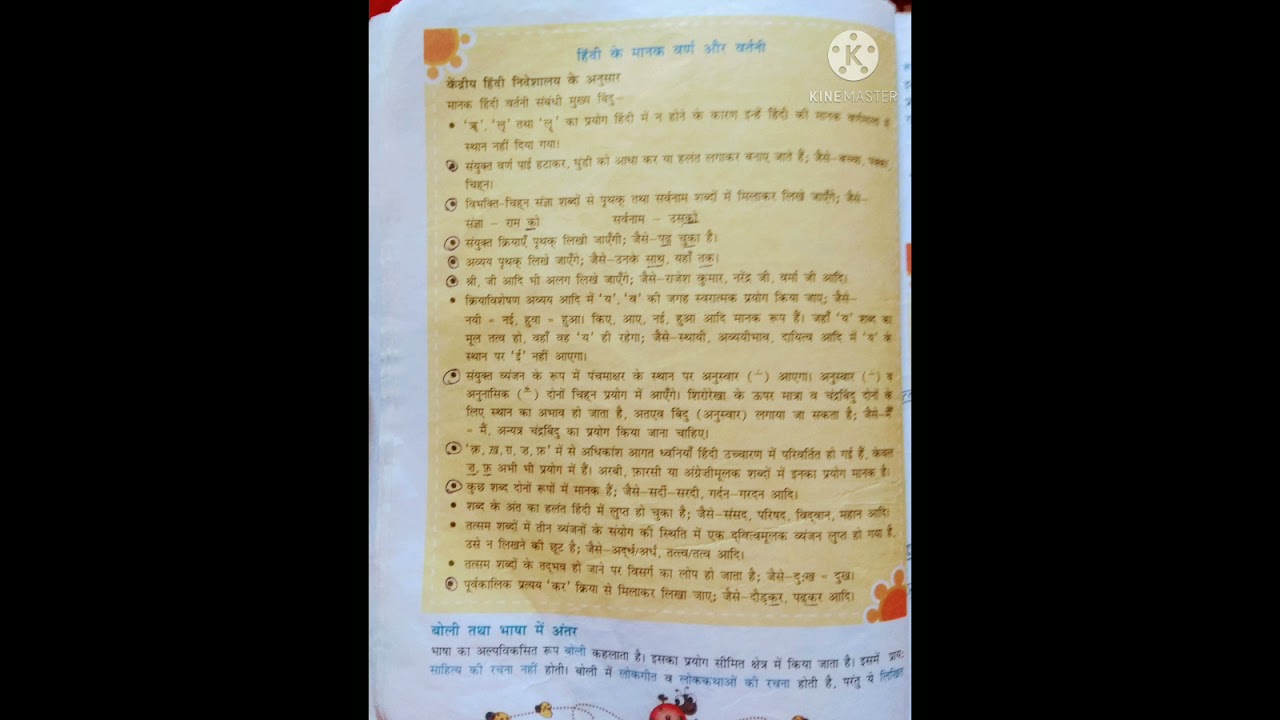 हिंदी के मानक वर्ण और वर्तनी
K
KINEMASTER
केंद्रीय हिंदी निदेशालय के अनुसार
मानक हिंदी वर्तनी संबंधी मुख्य बिंदु–
• 'ॠ', 'लृ' तथा 'लॄ' का प्रयोग हिंदी में न होने के कारण इन्हें हिंदी की मानक वर्णमाला में
स्थान नहीं दिया गया।
• संयुक्त वर्ण पाई हटाकर, घुंडी को आधा कर या हलंत लगाकर बनाए जाते हैं; जैसे–बच्चा, पक्का,
चिह्न।
• विभक्ति-चिह्न संज्ञा शब्दों से पृथक् तथा सर्वनाम शब्दों में मिलाकर लिखे जाएँगे; जैसे–
संज्ञा – राम को सर्वनाम – उसको
• संयुक्त क्रियाएँ पृथक् लिखी जाएँगी; जैसे–पढ़ चुका है।
• अव्यय पृथक् लिखे जाएँगे; जैसे–उनके साथ, यहाँ तक।
• श्री, जी आदि भी अलग लिखे जाएँगे; जैसे–राजेश कुमार, नरेंद्र जी, वर्मा जी आदि।
• क्रियाविशेषण अव्यय आदि में 'य', 'व' की जगह स्वरात्मक प्रयोग किया जाए; जैसे–
नयी = नई, हुवा = हुआ। किए, आए, नई, हुआ आदि मानक रूप हैं। जहाँ 'य' शब्द का
मूल तत्व हो, वहाँ वह 'य' ही रहेगा; जैसे–स्थायी, अव्ययीभाव, दायित्व आदि में 'य' के
स्थान पर 'ई' नहीं आएगा।
• संयुक्त व्यंजन के रूप में पंचमाक्षर के स्थान पर अनुस्वार (ं) आएगा। अनुस्वार (ं) व
अनुनासिक (ँ) दोनों चिह्न प्रयोग में आएँगे। शिरोरेखा के ऊपर मात्रा व चंद्रबिंदु दोनों के
लिए स्थान का अभाव हो जाता है, अतएव बिंदु (अनुस्वार) लगाया जा सकता है; जैसे–मैँ
= मैं, अन्यत्र चंद्रबिंदु का प्रयोग किया जाना चाहिए।
• 'क़, ख़, ग़, ज़, फ़' में से अधिकांश आगत ध्वनियाँ हिंदी उच्चारण में परिवर्तित हो गई हैं, केवल
ज़, फ़ अभी भी प्रयोग में हैं। अरबी, फ़ारसी या अंग्रेज़ीमूलक शब्दों में इनका प्रयोग मानक है।
• कुछ शब्द दोनों रूपों में मानक हैं; जैसे–सर्दी–सरदी, गर्दन–गरदन आदि।
• शब्द के अंत का हलंत हिंदी में लुप्त हो चुका है; जैसे–संसद, परिषद, विद्वान, महान आदि।
• तत्सम शब्दों में तीन व्यंजनों के संयोग की स्थिति में एक द्वित्वमूलक व्यंजन लुप्त हो गया है,
उसे न लिखने की छूट है; जैसे–अर्द्ध/अर्ध, तत्त्व/तत्व आदि।
• तत्सम शब्दों के तद्भव हो जाने पर विसर्ग का लोप हो जाता है; जैसे–दुःख = दुख।
• पूर्वकालिक प्रत्यय 'कर' क्रिया से मिलाकर लिखा जाए; जैसे–दौड़कर, पढ़कर आदि।
बोली तथा भाषा में अंतर
भाषा का अल्पविकसित रूप बोली कहलाता है। इसका प्रयोग सीमित क्षेत्र में किया जाता है। इसमें प्रायः
साहित्य की रचना नहीं होती। बोली में लोकगीत व लोककथाओं की रचना होती है, परंतु ये लिखित